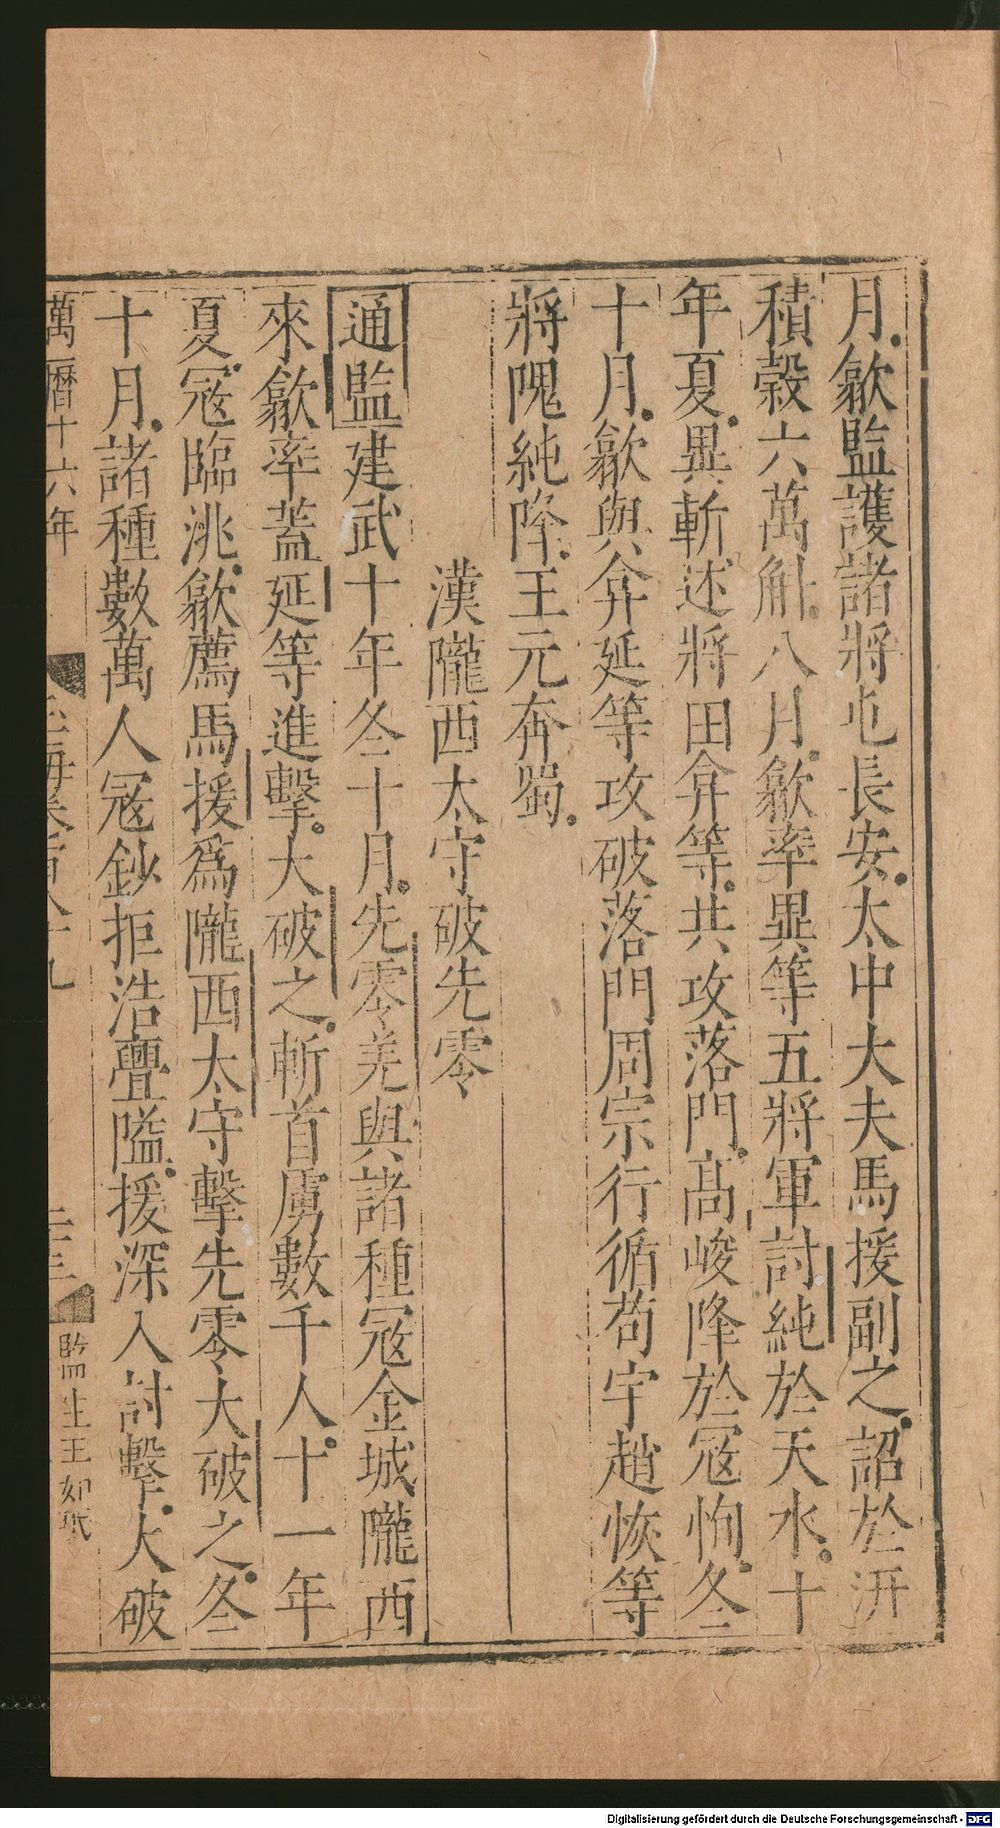 月歙監護諸將屯長安太中大夫馬援副之詔於汧
積穀六萬斛八月歙率異等五將軍討純於天水十
年夏異斬述將田弇等共攻落門高峻降於寇恂冬
十月歙與弇延等攻破落門周宗行循苟宇趙恢等
將隗純降王元奔蜀
漢隴西太守破先零
通監建武十年冬十月先零羌與諸種冦金城隴西
來歙率蓋延等進擊大破之斬首虜數千人十一年
夏冦臨洮歙薦馬援爲隴西太守擊先零大破之冬
十月諸種數萬人冦鈔拒浩亹隘援深入討擊大破
萬曆十六年
玉海卷百八十九
二十三
監生王如珉
Digitalisierung gefördert durch die Deutsche Forschungsgemeinschaft - DFG